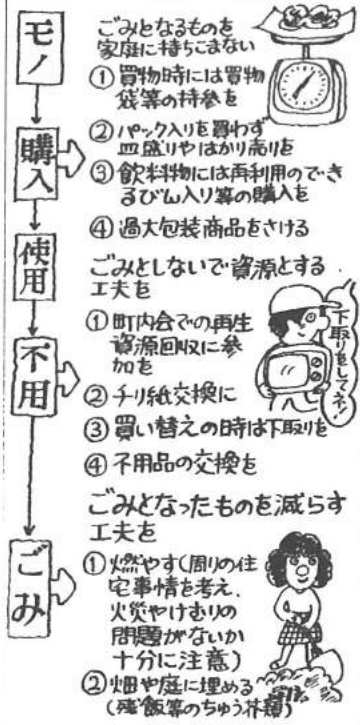 モノ
ごみとなるものを
家庭に持ちこまない
① 買物時には買物
袋等の持参を
購入
② パック入りを買わず
皿盛りやはかり売りを
③ 飲料物には再利用のでき
るびん入り等の購入を
④ 過大包装商品をさける
使用
ごみとしないで資源とする
工夫を
① 町内会での再生
資源回収に参
加を
下取りをしてネ!
不用
② チリ紙交換に
③ 買い替えの時は下取りを
④ 不用品の交換を
ごみとなったものを減らす
工夫を
ごみ
① 燃やす(周りの住
宅事情を考え、
火災やけむりの
問題がないか
十分に注意)
② 畑や庭に埋める
(残飯等のちゅう芥類)